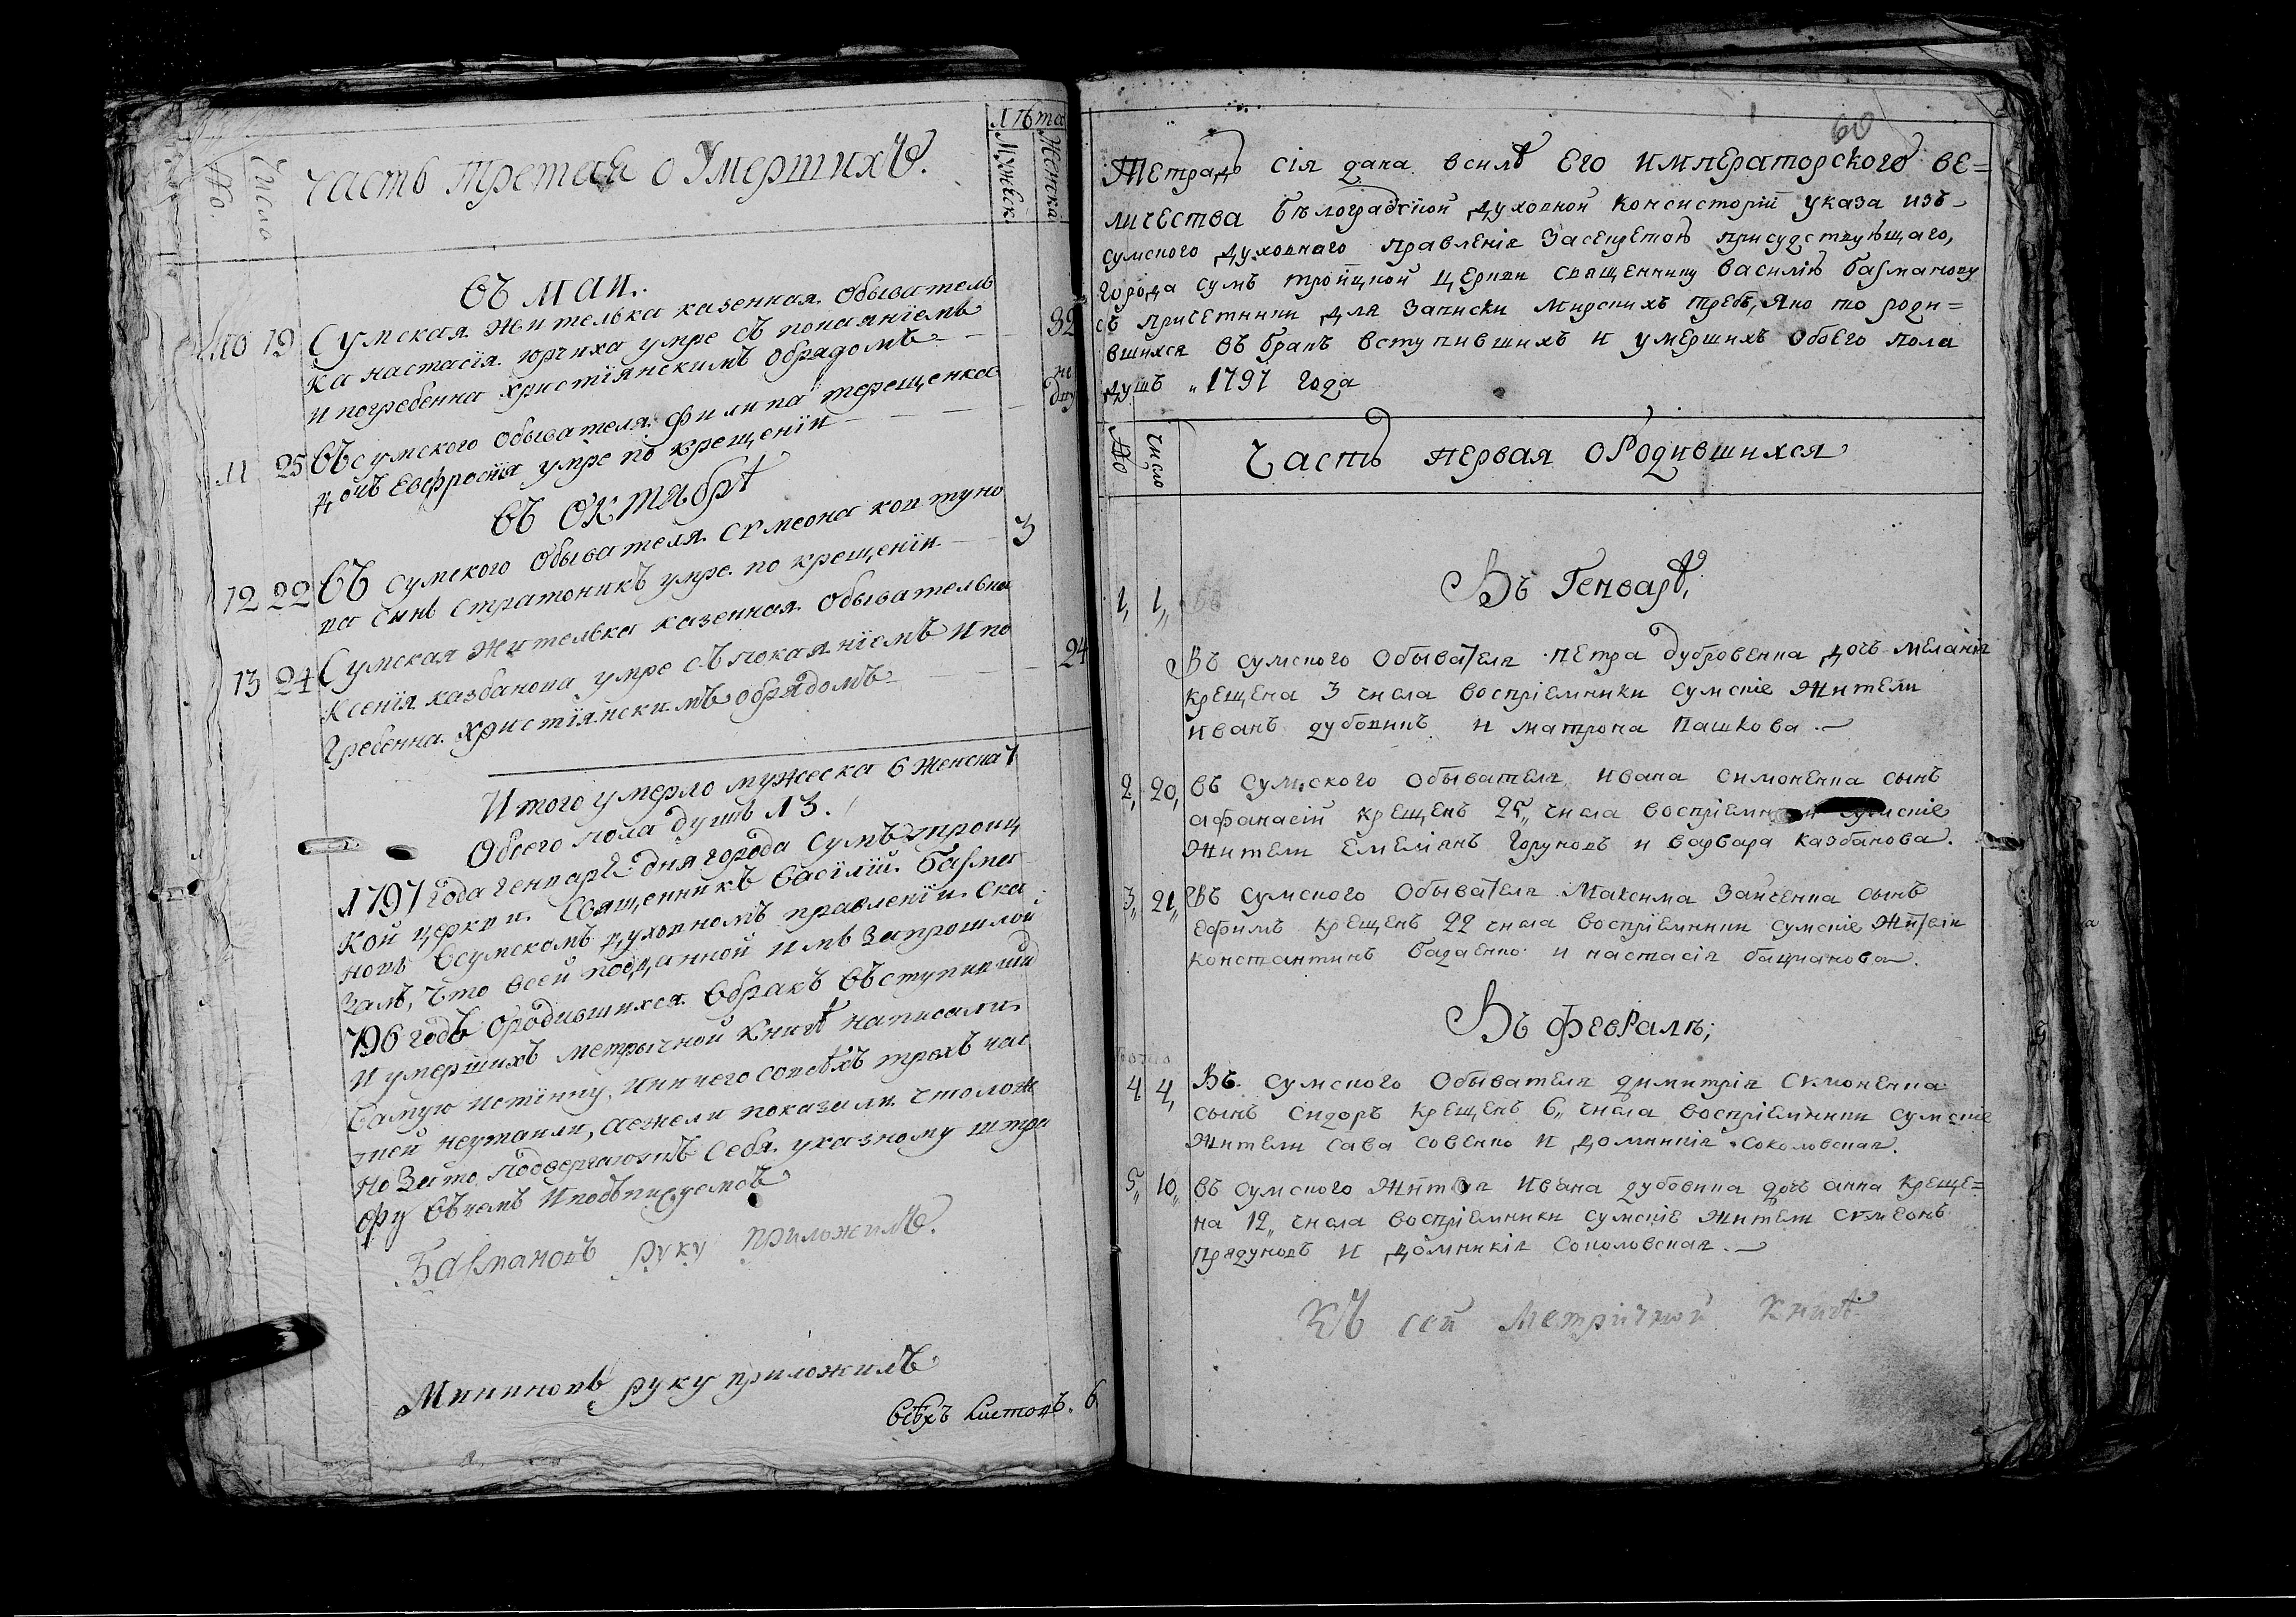 Часть третая о Умершихъ.
№.
Число
Лѣта
Мужеск
Женска
въ маи.
10 19 Сумская жителька казенная обыватель
ка настасїя юрчиха умре съ покаянїемъ
и погребенна христїянскимъ обрядомъ 32
11 25 Въ сумского обывателя филипа терещенка
дочъ Евфросїя умре по крещенїи
въ октябрѣ
12 22 Въ сумского обывателя сѵмеона колтуно
ва сынъ стратоникъ умре по крещенїи 3
13 24 Сумская жителька казенная обывателька
Ксенїя казбанова умре съ покаянїемъ и по
гребенна христїянскимъ обрядомъ 24
Итого умерло мужеска 6 женска 7
Обоего пола душъ 13.
1797 года генваря дня города Сумъ троиц
кой церкви Священникъ Василїй Басма
новъ всумскомъ духовномъ правленїи ска
залъ, что всей поданной имъ запрошлой
796 годъ ородившихся вбракъ въступившихъ
и умершихъ метричной книгѣ написали
самую истинну, иничего совсѣхъ трохъ час
тей неутаили, аежели показали что лож
но Зато подвергаютъ себя указному штра
фу въчемъ иподъписуемсь
Басмановъ руку приложилъ.
Мининовъ руку приложилъ
всѣхъ листовъ. 6
60
Тетрадь сїя дана всилѣ Его императорского ве=
личества бѣлоградской духовной консисторїи указа изъ
сумского духовнаго правленїя Засецетомъ присудствующаго,
города сумъ тройцкой церкви священнику василїю басманову
съ причетники для записки мирскихъ требъ, яко то роди=
вшихся въ бракъ вступившихъ и умершихъ обоего пола
душъ „1797 года
№
число
Часть первая оРодившихся
Въ Генварѣ,
1, 1,
Въ сумского обывателя петра дубровенка дочь меланїя
крещена 3 числа воспрїемники сумскїе жители
иванъ дубовикъ и матрона Пашкова.
2, 20, въ сумского обывателя ивана симоненка сынъ
афанасїй крещенъ 25„ числа воспрїемники сумскїе
жители емелїянъ горуновъ и варвара казбанова.
3„ 21„ Въ сумского обывателя Максима Зайченка сынъ
ефимъ крещенъ 22 числа воспрїемники сумскїе жители
константинъ бадаенко и настасїя бацманова.
Въ февралѣ;
4 4, Въ сумского обывателя димитрїя сѵмоненка
сынъ сидоръ крещенъ 6„ числа воспрїемники сумскїе
жители сава совенко и домникїя соколовская.
5„ 10„ въ сумского жителя ивана дубовика дочъ анна креще=
на 12„ числа воспрїемники сумскїе жители сѵмеонъ
прядуновъ и домникїя соколовская.
Къ сей метричной книгѣ